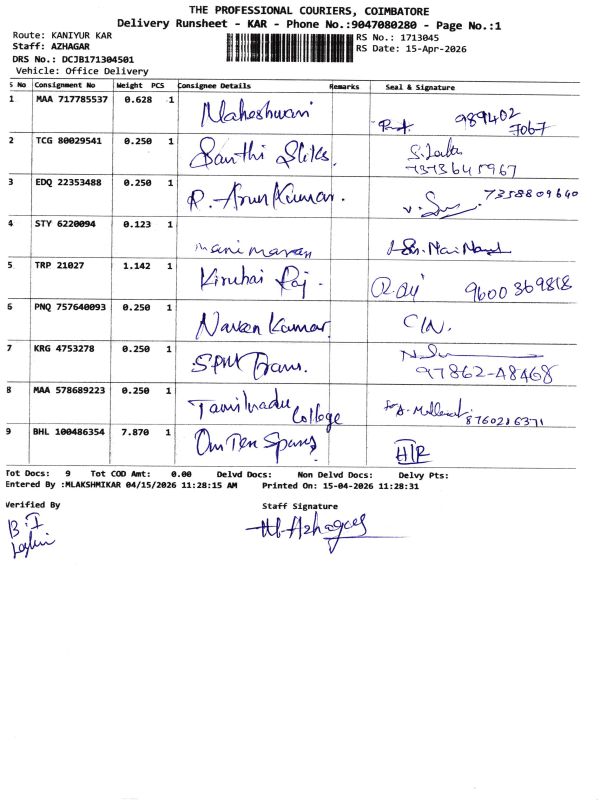 THE PROFESSIONAL COURIERS, COIMBATORE
Delivery Runsheet - KAR - Phone No.:9047080280 - Page No.:1
Route: KANIYUR KAR
RS No.: 1713045
Staff: AZHAGAR
RS Date: 15-Apr-2026
DRS No.: DCJB171304501
Vehicle: Office Delivery
S No Consignment No Weight PCS Consignee Details Remarks Seal & Signature
1 MAA 717785537 0.628 1 Maheshwari 989402 7067
2 TCG 80029541 0.250 1 Santhi Slks. 7373645967
3 EDQ 22353488 0.250 1 R. Arun Kumar. 7358809640
4 STY 6220094 0.123 1 manimaran
5 TRP 21027 1.142 1 Kiruhai Raj. 9600369818
6 PNQ 757640093 0.250 1 Naveen Kumar C/N.
7 KRG 4753278 0.250 1 SPM Trans. 97862-48468
8 MAA 578689223 0.250 1 Tamilnadu College 8760216371
9 BHL 100486354 7.870 1 Om Ten Spares H/R
Tot Docs: 9 Tot COD Amt: 0.00 Delvd Docs: Non Delvd Docs: Delvy Pts:
Entered By :MLAKSHMIKAR 04/15/2026 11:28:15 AM Printed On: 15-04-2026 11:28:31
Verified By Staff Signature
B. I
M. Azhagar